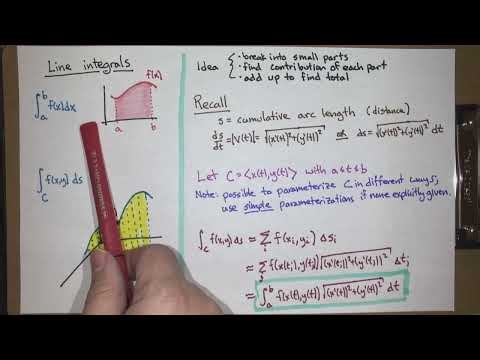 Line integrals
∫_a^b f(x)dx
f(x)
a b
∫_C f(x,y) ds
Idea { • break into small parts
• find contribution of each part
• add up to find total
Recall
s = cumulative arc length (distance)
ds/dt = |v(t)| = √((x'(t))²+(y'(t))²) or ds = √((x'(t))²+(y'(t))²) dt
Let C = <x(t),y(t)> with a≤t≤b
Note: possible to parameterize C in different ways;
use simple parameterizations if none explicitly given.
∫_C f(x,y) ds ≈ Σ_i f(x_i,y_i) Δs_i
≈ Σ_i f(x(t_i),y(t_i)) √((x'(t_i))²+(y'(t_i))²) Δt_i
= ∫_a^b f(x(t),y(t)) √((x'(t))²+(y'(t))²) dt